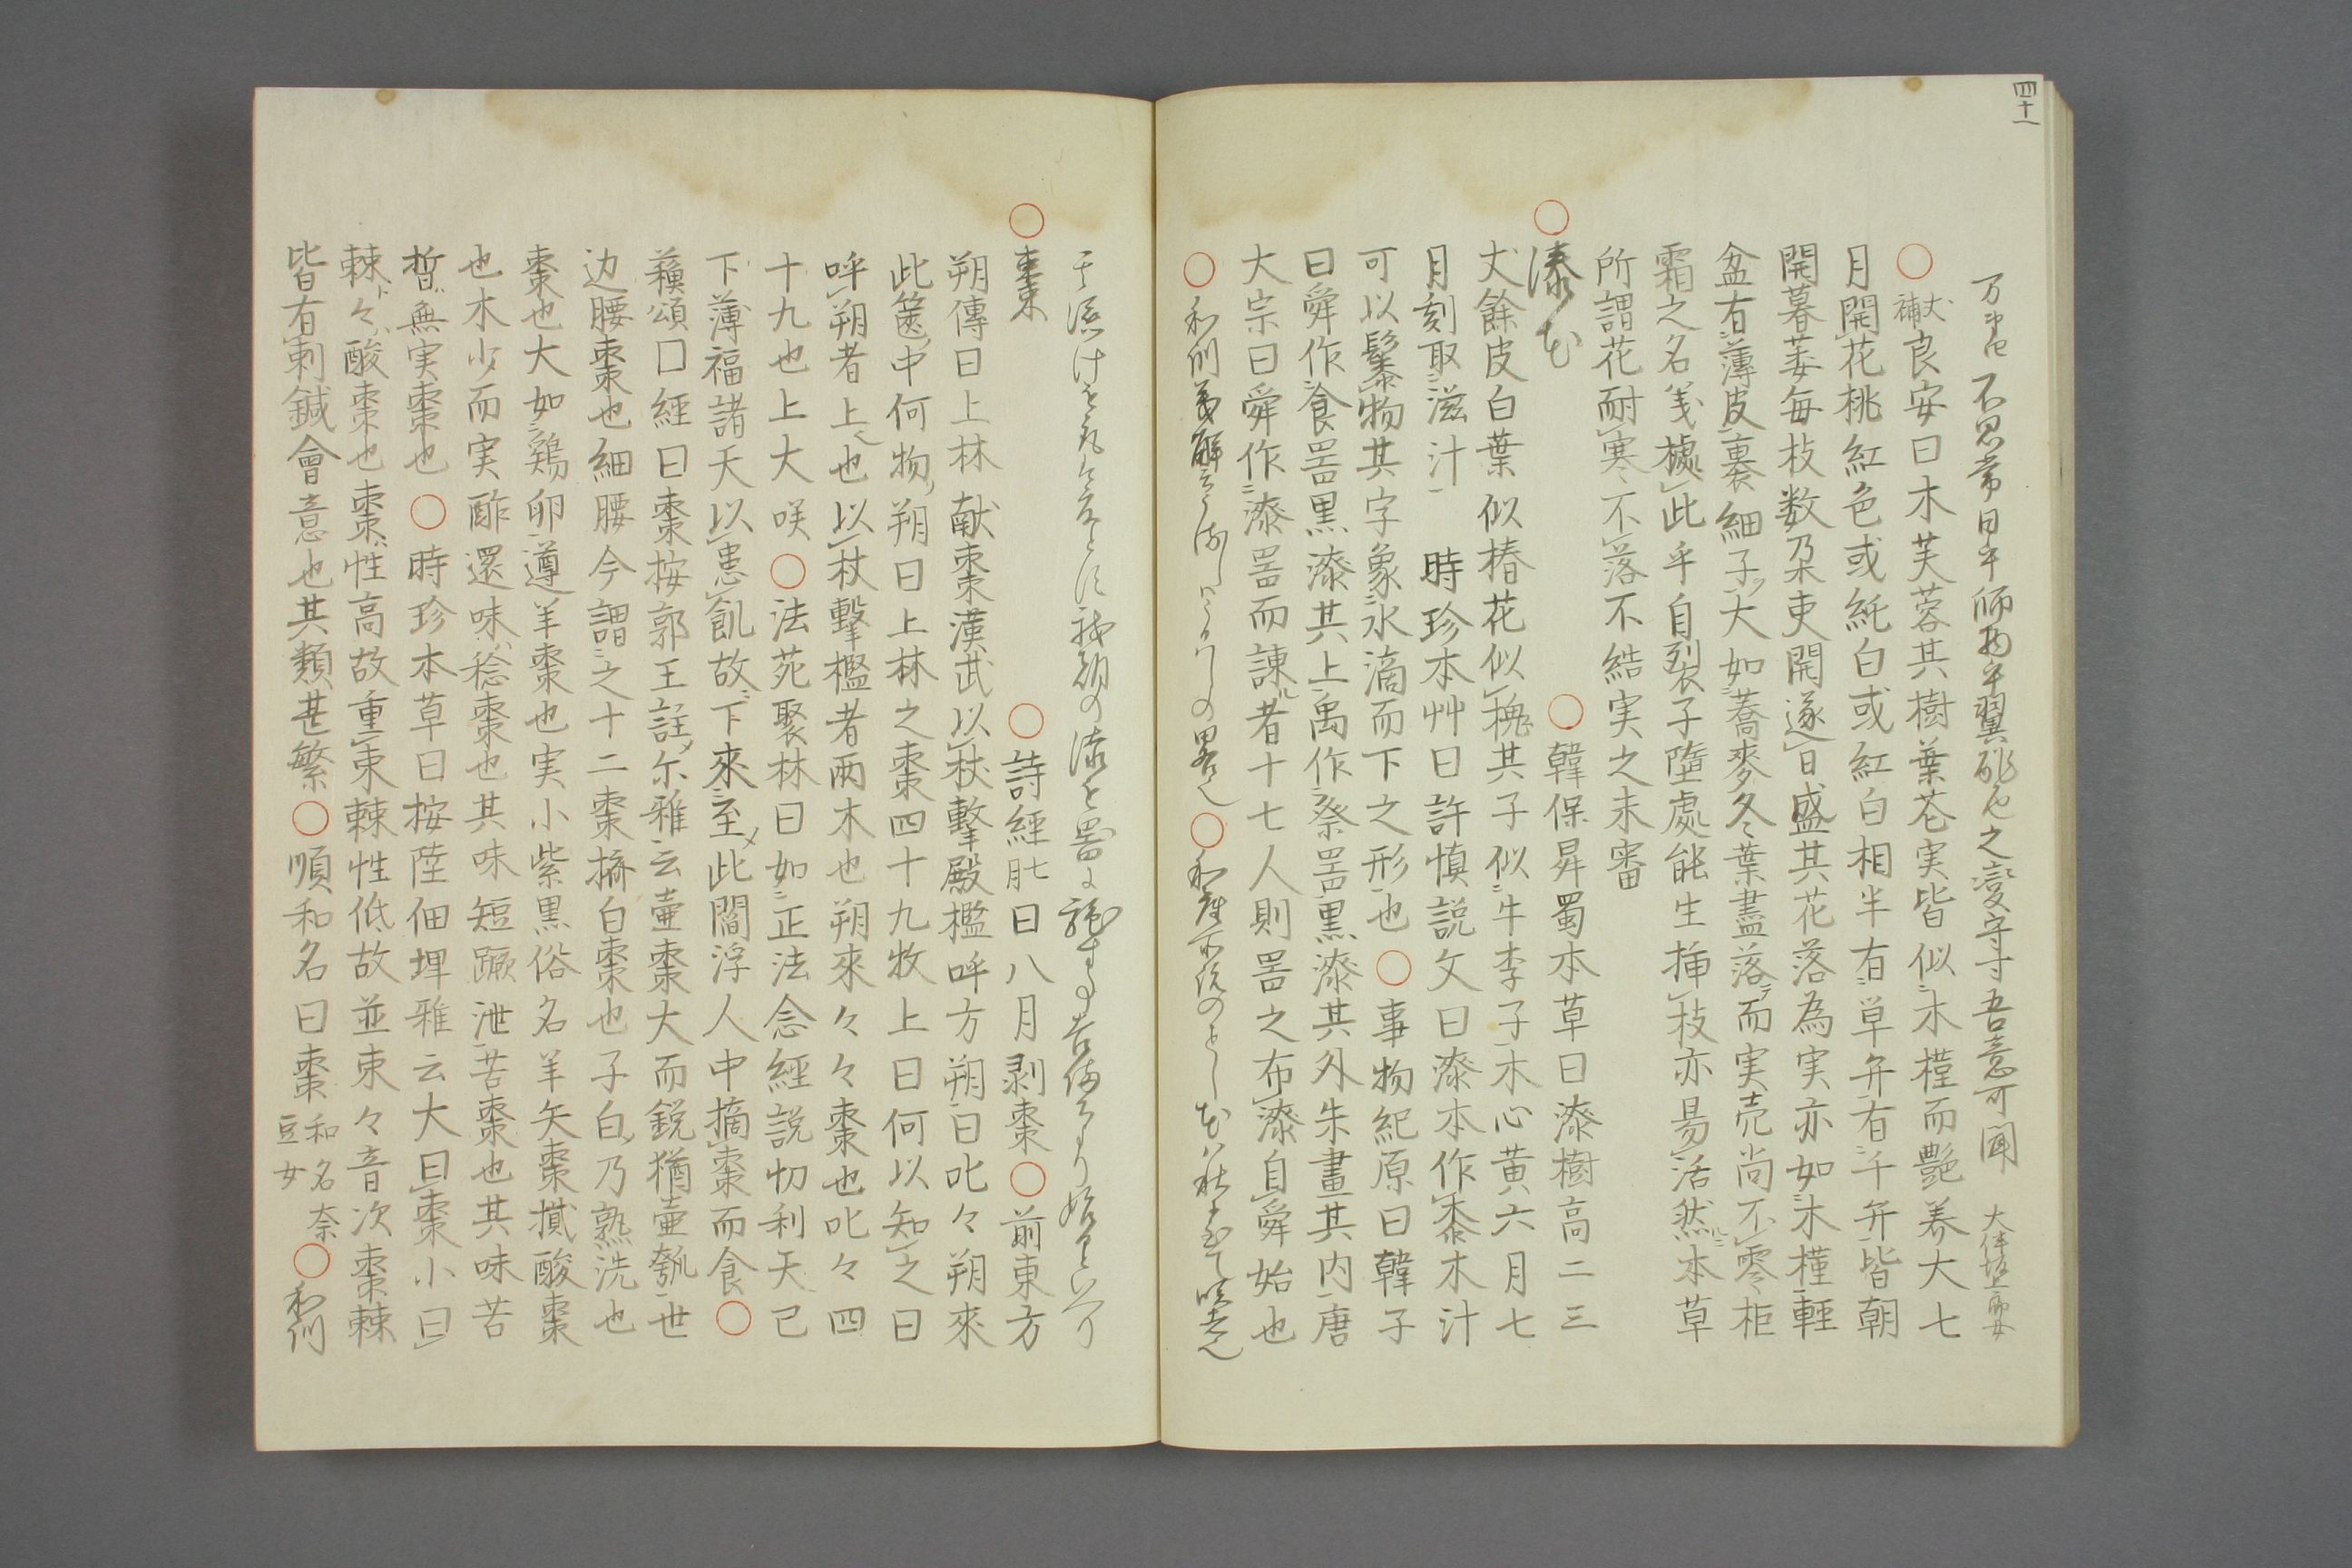 四十一
不思常日年師物年翼兆也之変守寸吾意可聞
○補犬良安曰木芙蓉其樹葉花実皆似木槿而艶美大七
月開花桃紅色或純白或紅白相半有単弁有千弁皆朝
開暮萎毎枝数朶吏開遂日盛其花落為実亦如木槿軽
盆有薄皮裹細子大如蕎麥冬葉盡落而実売尚不零柜
霜之名戔據此乎自裂子墮處能生挿枝亦易活然本草
所謂花耐寒不落不結実之未審
○漆 ○韓保昇蜀本草曰漆樹高二三
丈餘皮白葉似椿花似槐其子似牛李子木心黄六月七
月刻取滋汁 時珍本艸曰許慎説文曰漆本作桼木汁
可以髹物其字象水滴而下之形也○事物紀原曰韓子
曰舜作食噐黒漆其上禹作祭噐黒漆其外朱畫其内唐
大宗曰舜作漆噐而諌者十七人則噐之布漆自舜始也
○和訓義解 の畧也○和 所説の
○棗 ○詩經七月曰八月剥棗○前東方
朔傳曰上林献棗漢武以杖擊殿檻呼方朔曰叱々朔來
此篋中何物朔曰上林之棗四十九牧上曰何以知之曰
呼朔者上也以杖擊檻者兩木也朔來々々棗也叱々四
十九也上大咲○法苑聚林曰如正法念經説忉利天已
下薄福諸天以患飢故下來至此閻浮人中摘棗而食○
蘓頌囗經曰棗按郭王註尓雅云壷棗大而鋭猶壷瓠世
边腰棗也細腰今謂之十二棗擠白棗也子白乃熟洗也
棗也大如鶏卵遵羊棗也実小紫黒俗名羊矢棗樲酸棗
也木少而実酢還味稔棗也其味短蹶泄苦棗也其味苦
晳無実棗也○時珍本草曰按陸佃埤雅云大曰棗小曰
棘々酸棗也棗性高故重朿棘性低故並朿々音次棗棘
皆有刺鍼會意也其類甚繁○順和名曰棗和名奈豆女○和訓